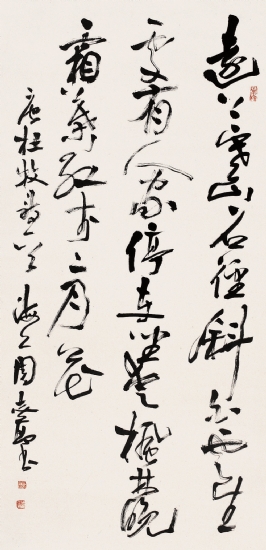 遠上寒山石徑斜白雲生
處有人家停車坐愛楓林晚
霜葉紅於二月花
唐杜牧詩一首 海上周志高書